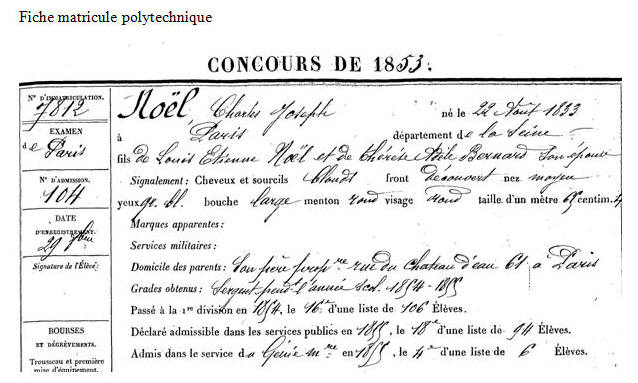 Fiche matricule polytechnique
CONCOURS DE 1853.
N° D'IMMATRICULATION.
7812
EXAMEN
de Paris
N° D'ADMISSION.
104
DATE
D'ENREGISTREMENT.
29 9bre
Signature de l'Élève.
BOURSES
ET DÉGRÈVEMENTS.
Trousseau et première
mise d'équipement.
Noël, Charles Joseph né le 22 Aout 1833
à Paris département de la Seine
fils de Louis Etienne Noël et de Thérèse Adèle Bernard son épouse
Signalement : Cheveux et sourcils blonds front découvert nez moyen
yeux gr. bl. bouche large menton rond visage rond taille d'un mètre 65 centim. 4
Marques apparentes :
Services militaires :
Domicile des parents : Son père prop.re rue du Chateau d'eau 61 à Paris
Grades obtenus : Sergent pend.t l'année scol. 1854-1855
Passé à la 1re division en 1854, le 16e d'une liste de 106 Élèves.
Déclaré admissible dans les services publics en 1855, le 18e d'une liste de 94 Élèves.
Admis dans le service du Génie m.re en 1855, le 4e d'une liste de 6 Élèves.